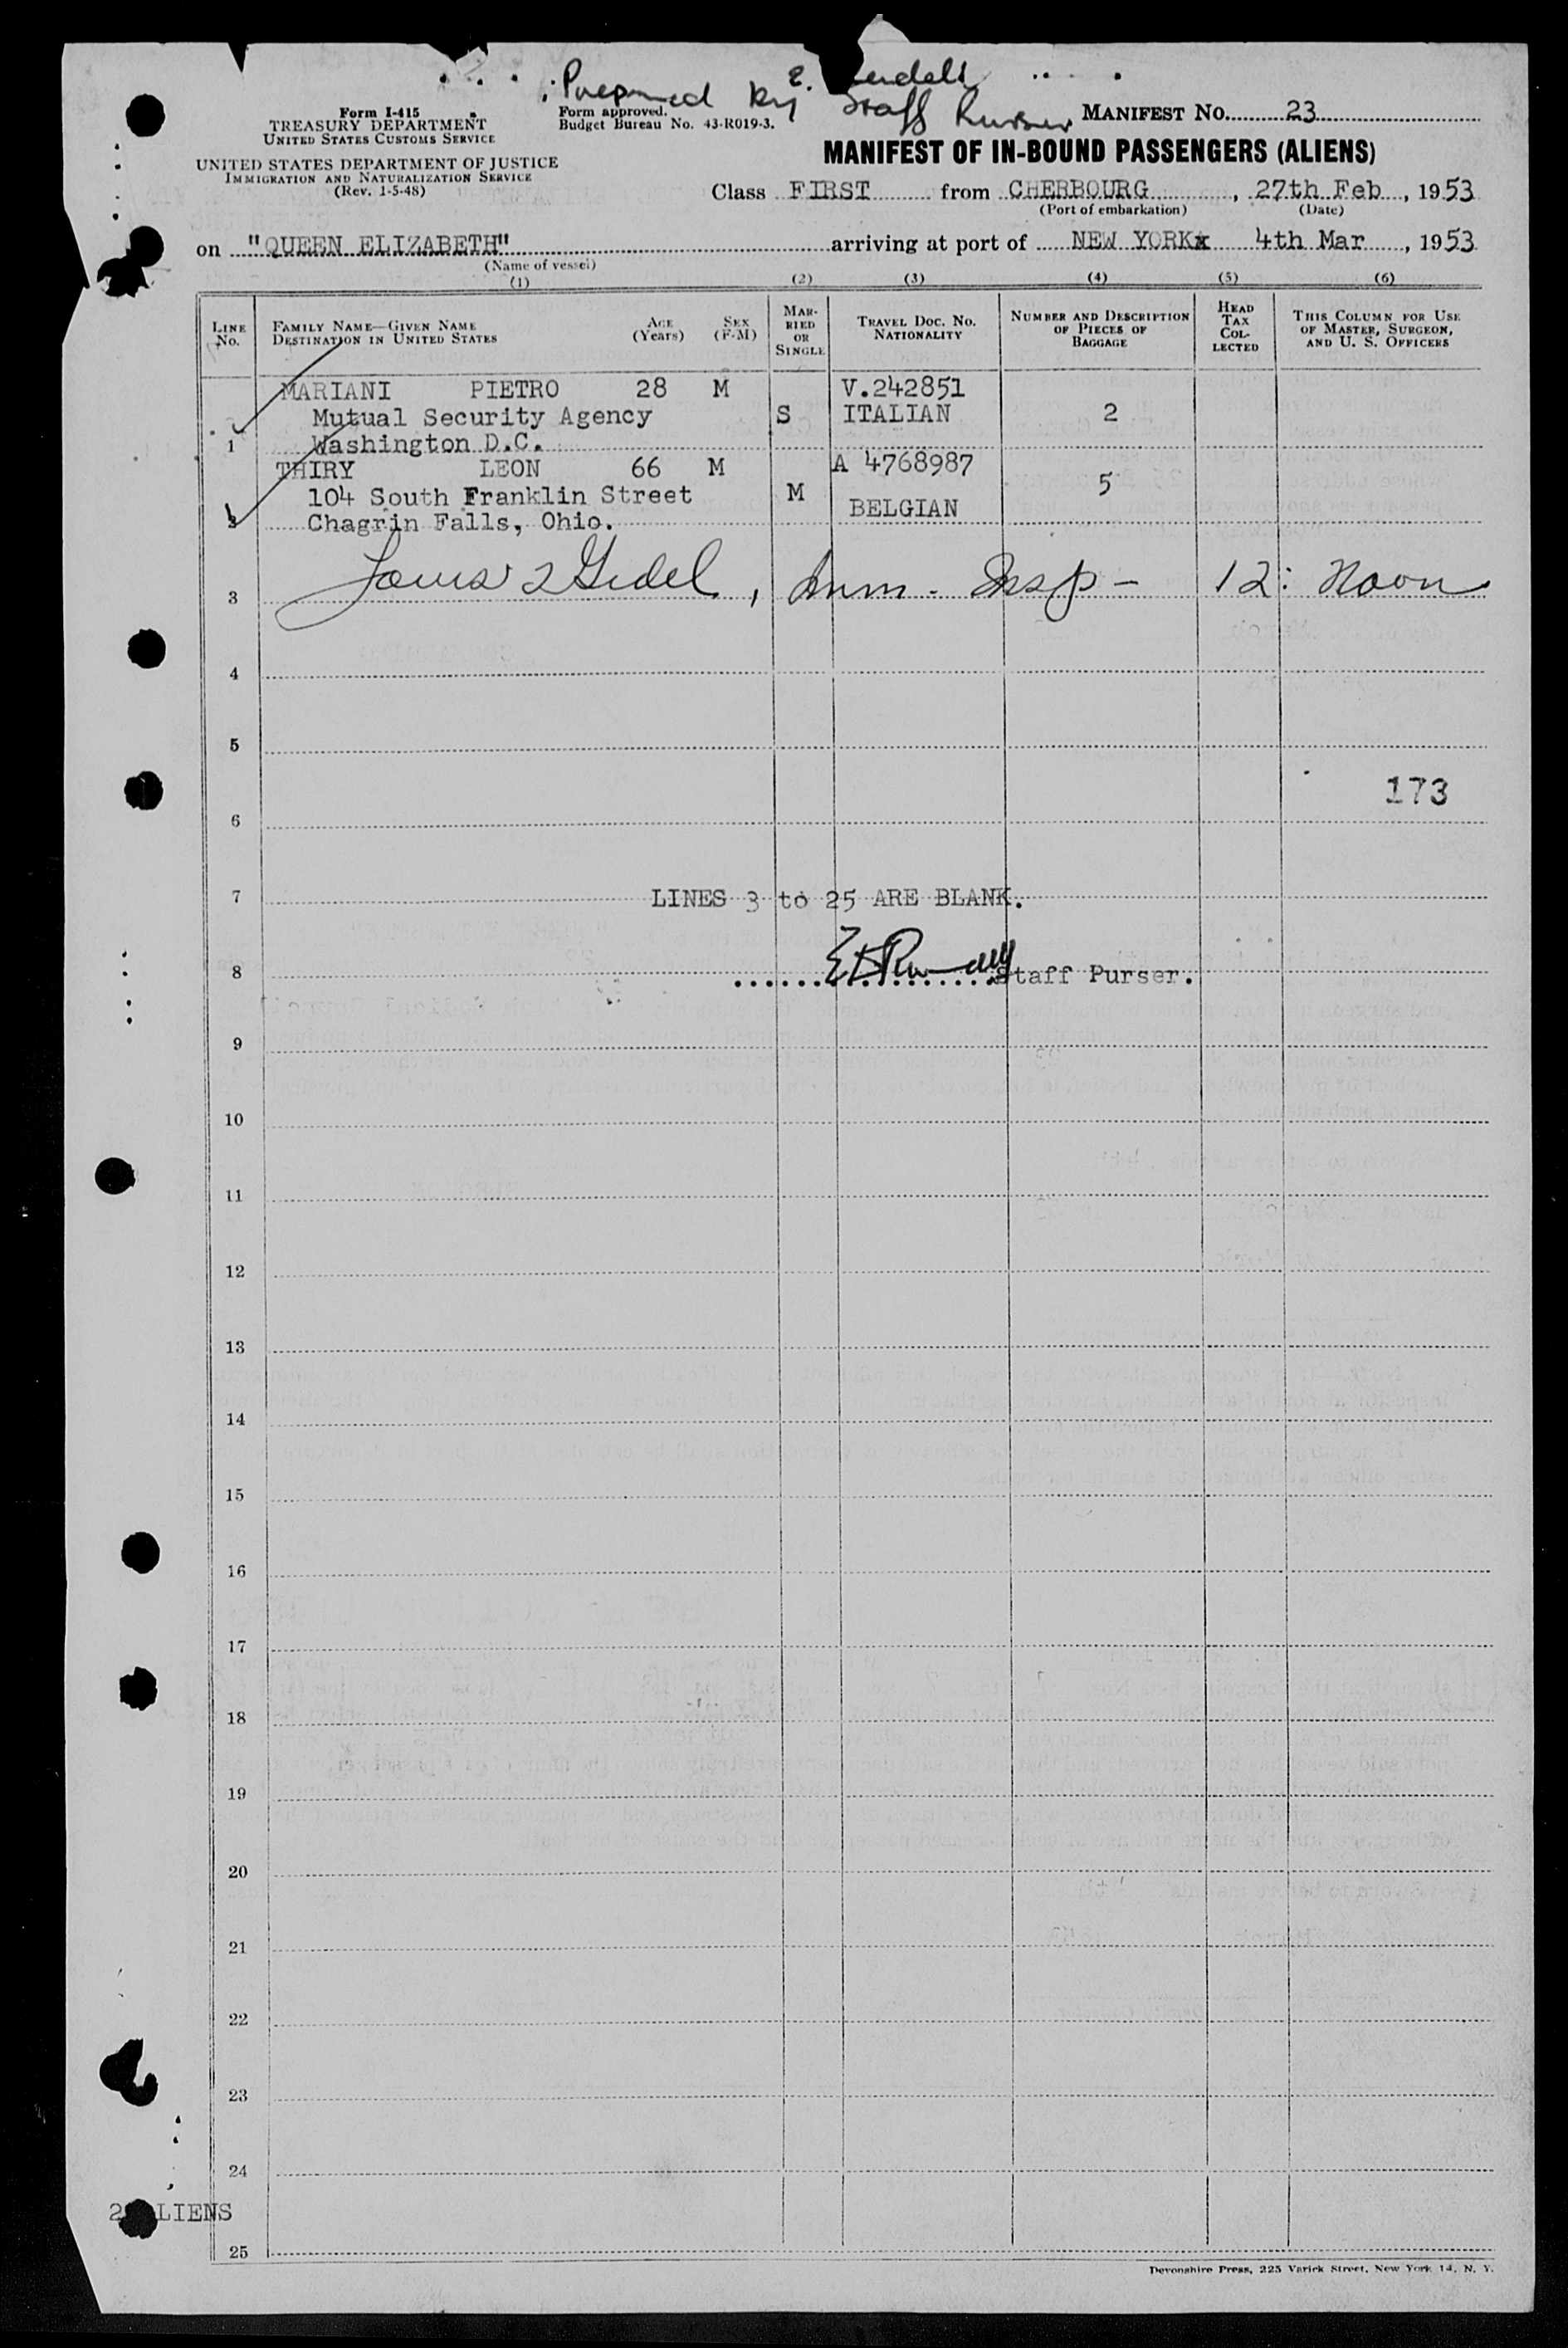 Prepared by E.
Staff Purser
Form I-415
TREASURY DEPARTMENT
UNITED STATES CUSTOMS SERVICE
UNITED STATES DEPARTMENT OF JUSTICE
IMMIGRATION AND NATURALIZATION SERVICE
(Rev. 1-5-48)
Form approved.
Budget Bureau No. 43-R019-3.
MANIFEST NO. 23
MANIFEST OF IN-BOUND PASSENGERS (ALIENS)
Class FIRST from CHERBOURG, 27th Feb, 1953
(Port of embarkation) (Date)
on "QUEEN ELIZABETH" arriving at port of NEW YORKx 4th Mar, 1953
(Name of vessel)
(1) (2) (3) (4) (5) (6)
LINE No. FAMILY NAME—GIVEN NAME DESTINATION IN UNITED STATES AGE (Years) SEX (F-M) MARRIED OR SINGLE TRAVEL DOC. NO. NATIONALITY NUMBER AND DESCRIPTION OF PIECES OF BAGGAGE HEAD TAX COLLECTED THIS COLUMN FOR USE OF MASTER, SURGEON, AND U. S. OFFICERS
MARIANI PIETRO 28 M V.242851
Mutual Security Agency S ITALIAN 2
1 Washington D.C.
THIRY LEON 66 M A 4768987
104 South Franklin Street M 5
BELGIAN
2 Chagrin Falls, Ohio.
3 Imm. Insp - 12: Noon
4
5
173
6
7 LINES 3 to 25 ARE BLANK.
8 Staff Purser.
9
10
11
12
13
14
15
16
17
18
19
20
21
22
23
24
2 ALIENS
25
Devonshire Press, 225 Varick Street, New York 14, N. Y.